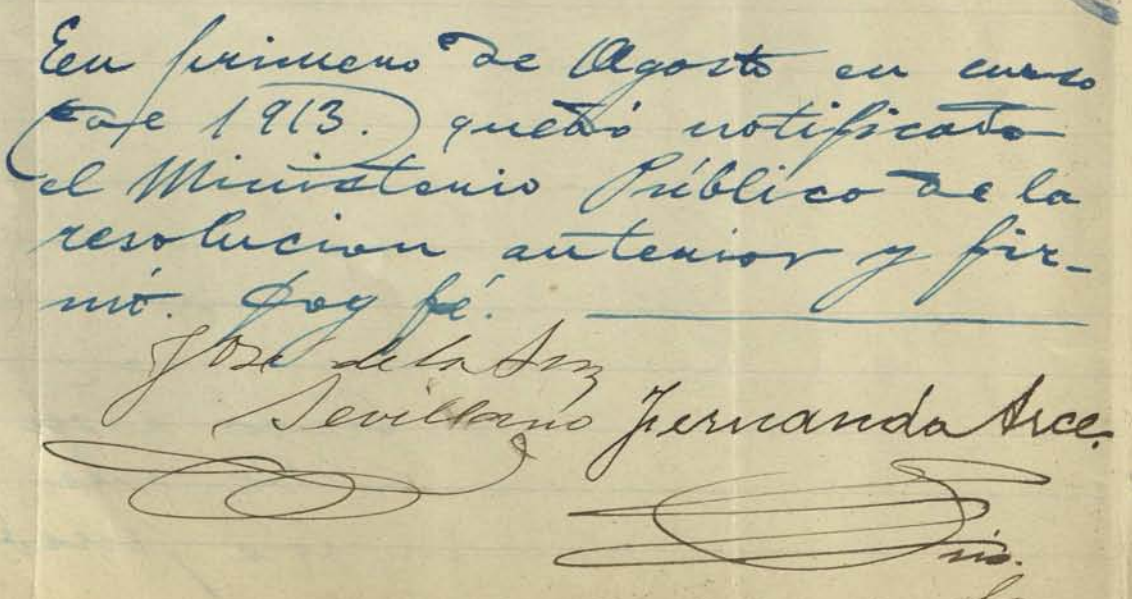 En primero de Agosto en curso
(de 1913.) quedó notificado
el Ministerio Público de la
resolucion anterior y fir-
mó. Doy fé.
José de la Luz
Sevillano Fernando Arce.
srio.